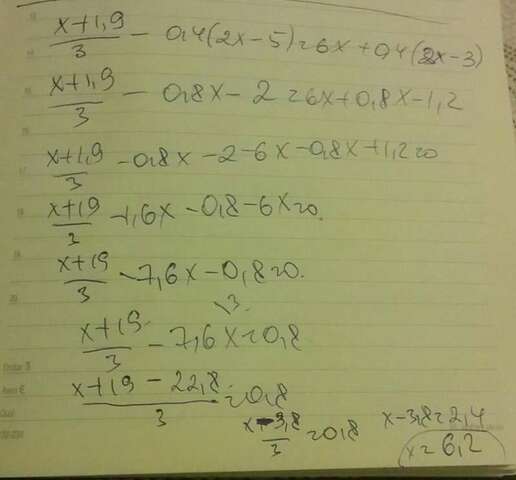 x+1,9/3 - 0,4(2x-5)=6x+0,4(2x-3)
x+1,9/3 - 0,8x-2=6x+0,8x-1,2
x+1,9/3 -0,8x-2-6x-0,8x+1,2=0
x+1,9/3 -1,6x-0,8-6x=0.
x+1,9/3 -7,6x-0,8=0.
\3
x+1,9/3 -7,6x=0,8
x+1,9-22,8/3=0,8
x-3,8/3=0,8
x-3,8=2,4
x=6,2